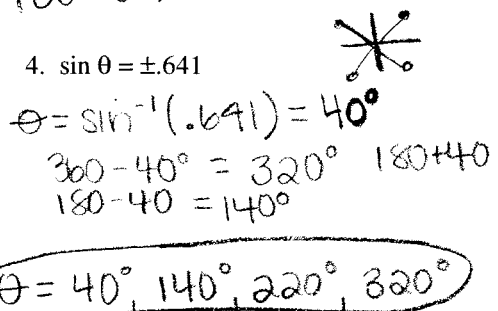 4. sin θ = ±.641
θ = sin⁻¹(.641) = 40°
360 - 40° = 320° 180+40
180 - 40 = 140°
θ = 40°, 140°, 220°, 320°